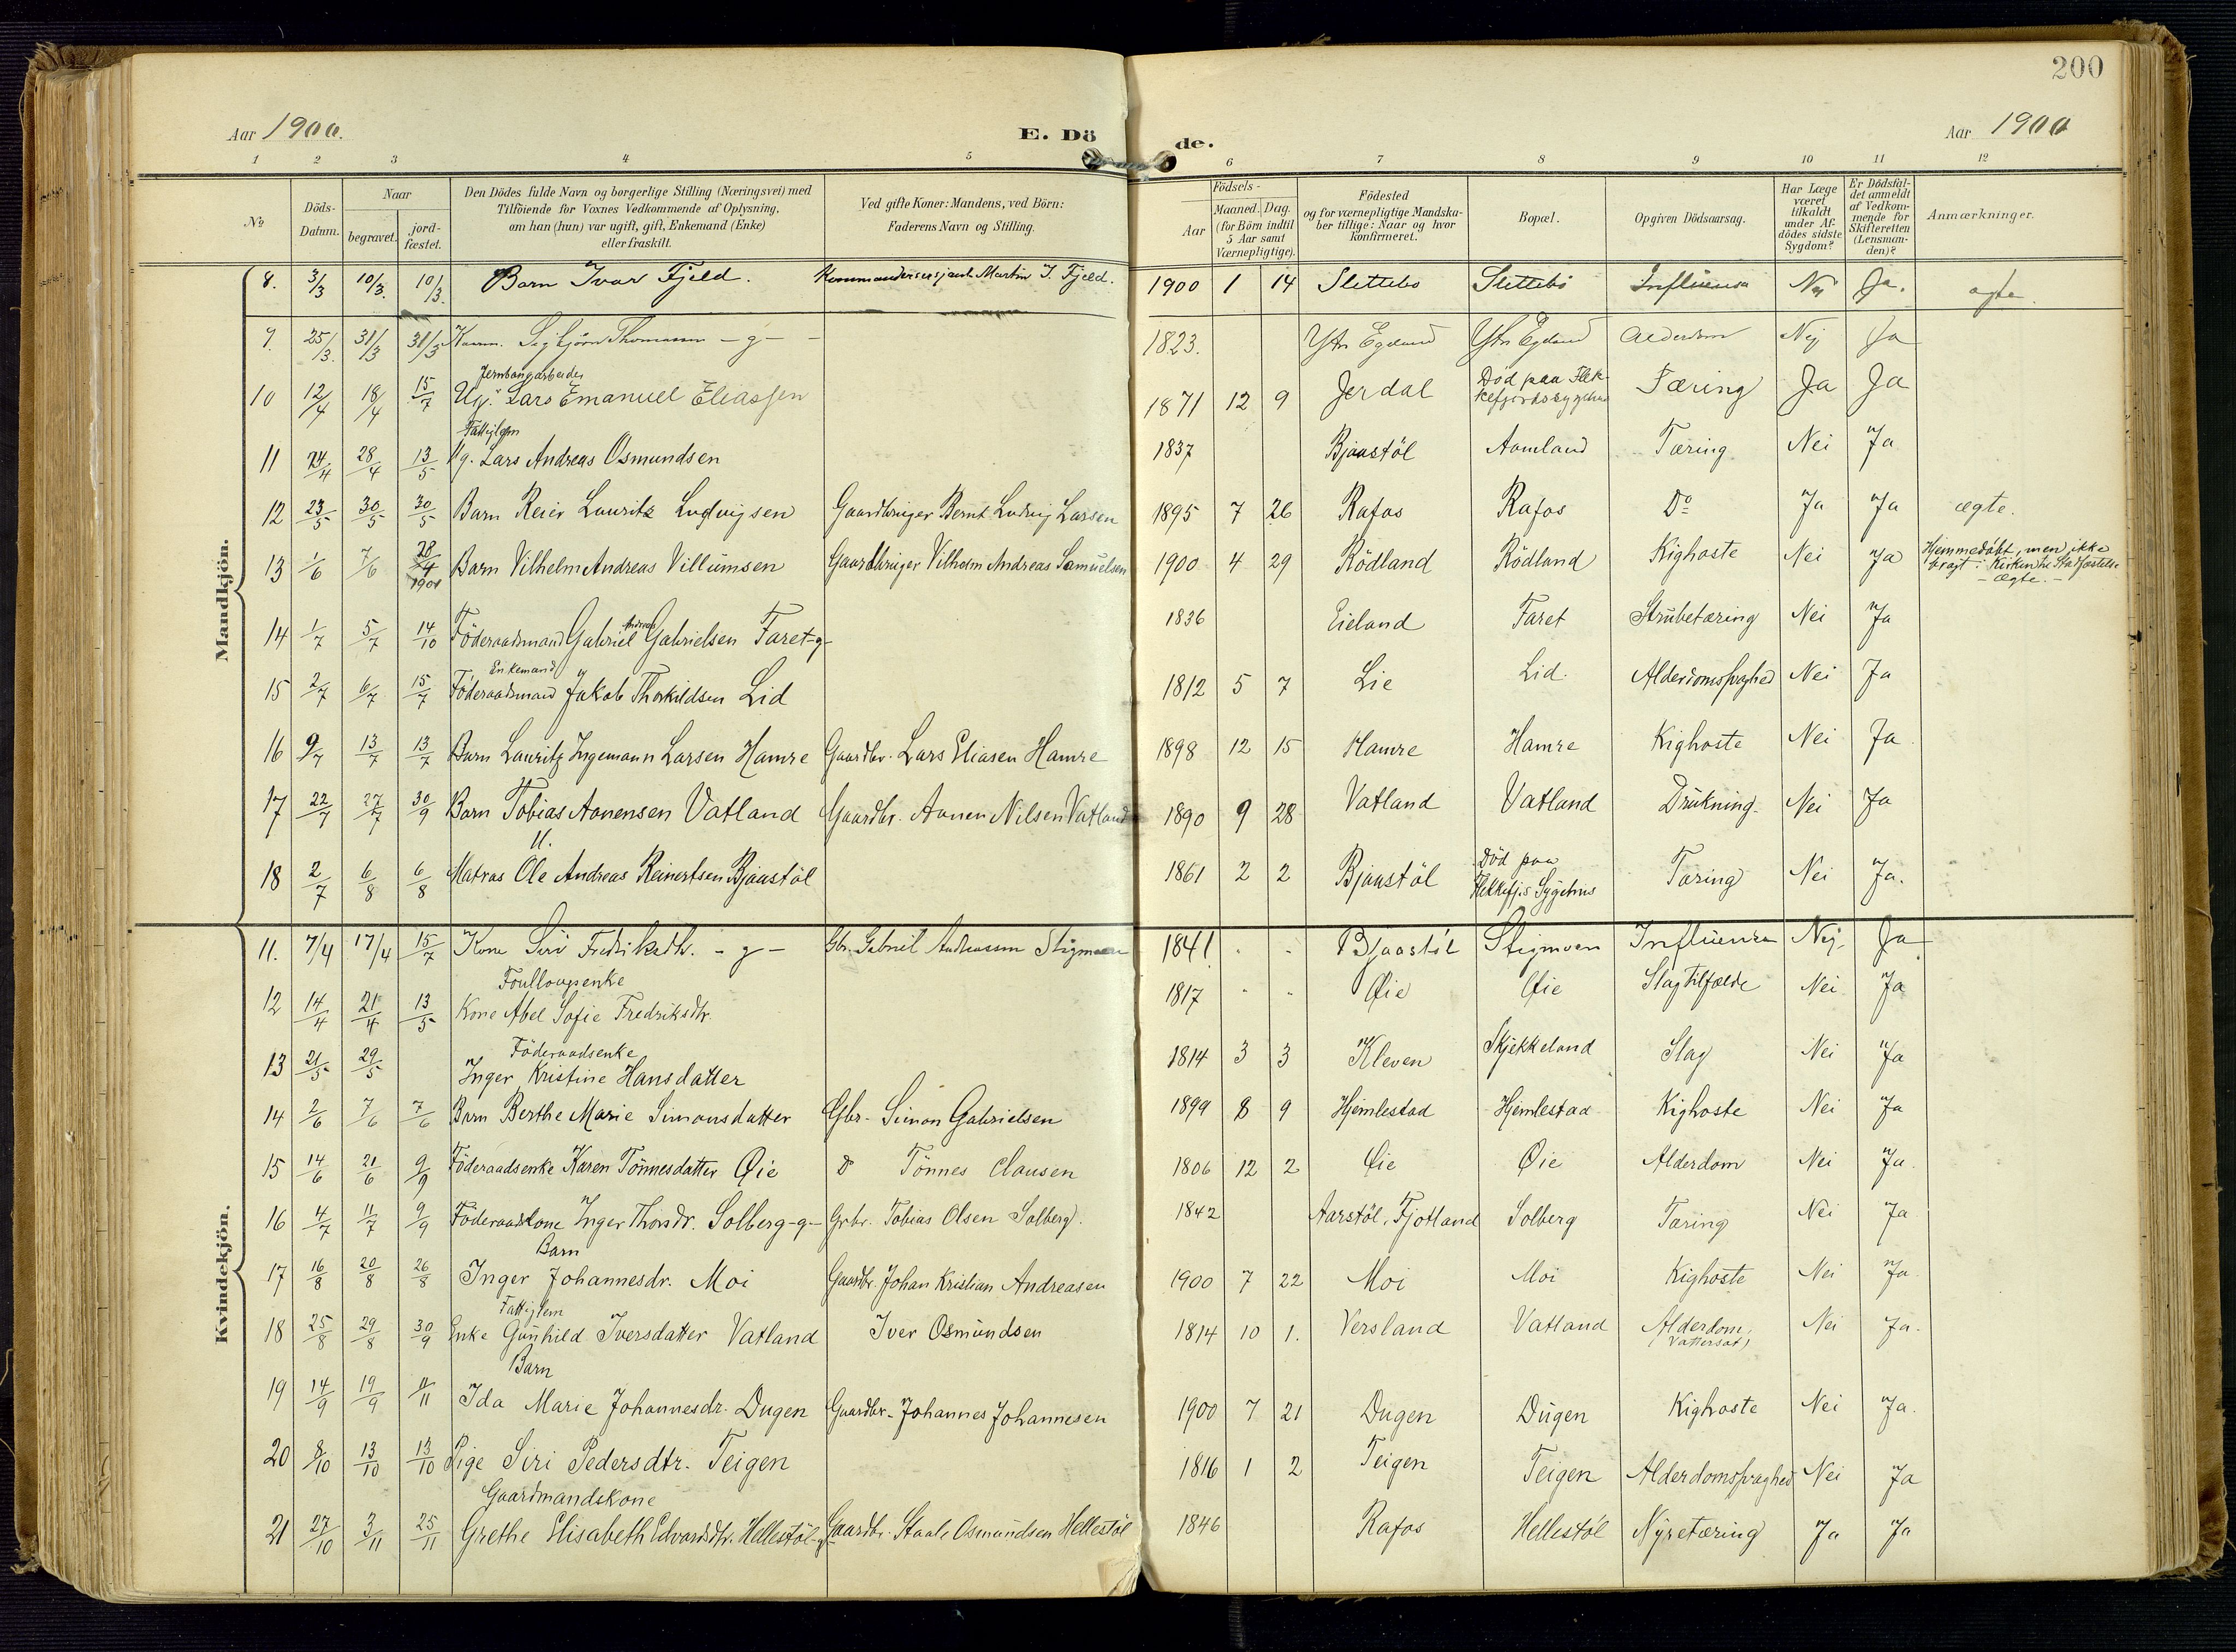 200
Aar 1900.
E. Dö
de.
Aar 1900
1 2 3 4 5 6 7 8 9 10 11 12
No
Döds-Datum.
Naar
begravet.
jord-fæstet.
Den Dödes fulde Navn og borgerlige Stilling (Næringsvei) med
Tilföiende for Voxnes Vedkommende af Oplysning,
om han (hun) var ugift, gift, Enkemand (Enke)
eller fraskilt.
Ved gifte Koner: Mandens, ved Börn:
Faderens Navn og Stilling.
Födsels-
Aar
Maaned. Dag.
(for Börn indtil
5 Aar samt
Værnepligtige).
Födested
og for værnepligtige Mandska-
ber tillige: Naar og hvor
Konfirmeret.
Bopæl.
Opgiven Dödsaarsag.
Har Læge
været
tilkaldt
under Af-
dödes sidste
Sygdom?
Er Dödsfal-
det anmeldt
af Vedkom-
mende for
Skifteretten
(Lensman-
den)?
Anmærkninger.
Mandkjön.
8. 3/3 10/3. 10/3. Barn Ivar Fjeld. Kommandersersjant Martin I. Fjeld. 1900 1 14 Slettebö Slettebö Influensa Nej Ja. ægte.
9. 25/3. 31/3 31/3 Sigbjörn Thomassen - g - 1823. Ytr. Egeland Ytr. Egeland Alderdom Nej Ja
Jernbanearbeider
10 12/4 18/4 15/7 Ug. Lars Emanuel Eliassen 1871 12 9 Jerdal Död paa Flek-
kefjords sygehus Tæring Ja Ja
Fattiglem
11 24/4 28/4 13/5 Ug. Lars Andreas Osmundsen 1837 Bjaastöl Aamland Tæring Nei Ja
12 23/5 30/5 30/5 Barn Reier Lauritz Ludvigsen Gaardbruger Bernt Ludvig Larsen 1895 7 26 Rafos Rafos Do Ja Ja ægte.
13 1/6 7/6 28/4 1901 Barn Vilhelm Andreas Villumsen Gaardbruger Vilhelm Andreas Samuelsen 1900 4 29 Rödland Rödland Kighoste Nei Ja Hjemmedöbt, men ikke
bragt i Kirken til Stadfæstelse
- ægte. -
14 1/7 5/7 14/10 Föderaadsmand Gabriel Andreas Gabrielsen Faret -g- 1836 Eieland Faret Strubetæring Nei Ja
Enkemand
15 2/7 6/7 15/7 Föderaadsmand Jakob Thorkildsen Lid 1812 5 7 Lie Lid. Alderdomssvaghed Nei Ja
16 9/7 13/7 13/7 Barn Lauritz Ingemann Larsen Hamre Gaardbr. Lars Eliasen Hamre 1898 12 15 Hamre Hamre Kighoste Nei Ja
17 22/7 27/7 30/9 Barn Tobias Aanensen Vatland Gaardbr. Aanen Nilsen Vatland 1890 9 28 Vatland Vatland Drukning. Nei Ja
U.
18 2/7 6/8 6/8 Matros Ole Andreas Reinertsen Bjaastöl 1861 2 2 Bjaastöl Död paa
Flekkefjs Sygehus Tæring Nei Ja.
Kvindekjön.
11. 7/4 17/4 15/7 Kone Siri Fredriksdtr. - g - Gbr. Gabriel Andreassen Stigmoen 1841 - - Bjaastöl Stigmoen Influensa Nej Ja
12 14/4 21/4 13/5 Kone Abel Sofie Fredriksdtr. 1817 - - Øie Øie Slagtilfælde Nei Ja
Föderaadsenke
13 21/5 29/5 Inger Kristine Hansdatter 1814 3 3 Kleven Skjekkeland Slag Nei Ja
14 2/6 7/6 7/6 Barn Berthe Marie Simonsdatter Gbr. Simon Gabrielsen 1899 8 9 Hjemlestad Hjemlestad Kighoste Nei Ja
15 14/6 21/6 9/9 Föderaadsenke Karen Tönnesdatter Øie Do Tönnes Clausen 1806 12 2 Øie Øie Alderdom Nei Ja.
16 4/7 11/7 9/9 Föderaadskone Inger Thorsdr. Solberg -g- Grbr. Tobias Olsen Solberg. 1842 Aarstöl, Fjotland Solberg Tæring Nei Ja
Barn
17 16/8 20/8 26/8 Inger Johannesdr. Moi Gaardbr. Johan Kristian Andreasen 1900 7 22 Moi Moi Kighoste Nei Ja.
Fattiglem
18 25/8 29/8 30/9 Enke Gunhild Iversdatter Vatland Iver Osmundsen 1814 10 1. Versland Vatland Alderdom,
(Vattersot) Nei Ja.
Barn
19 14/9 19/9 11/11 Ida Marie Johannesdr. Dugen Gaardbr. Johannes Johannesen 1900 7 21 Dugen Dugen Kighoste Nei Ja.
20 8/10 13/10 13/10 Pige Siri Pedersdtr. Teigen 1816 1 2 Teigen Teigen Alderdomssvaghed Nei Ja
Gaardmandskone
21 27/10 3/11 25/11 Grethe Elisabeth Edvardsdtr. Hellestöl -g- Gaardbr. Staale Osmundsen Hellestöl 1846 Rafos Hellestöl Nyretæring Ja Ja